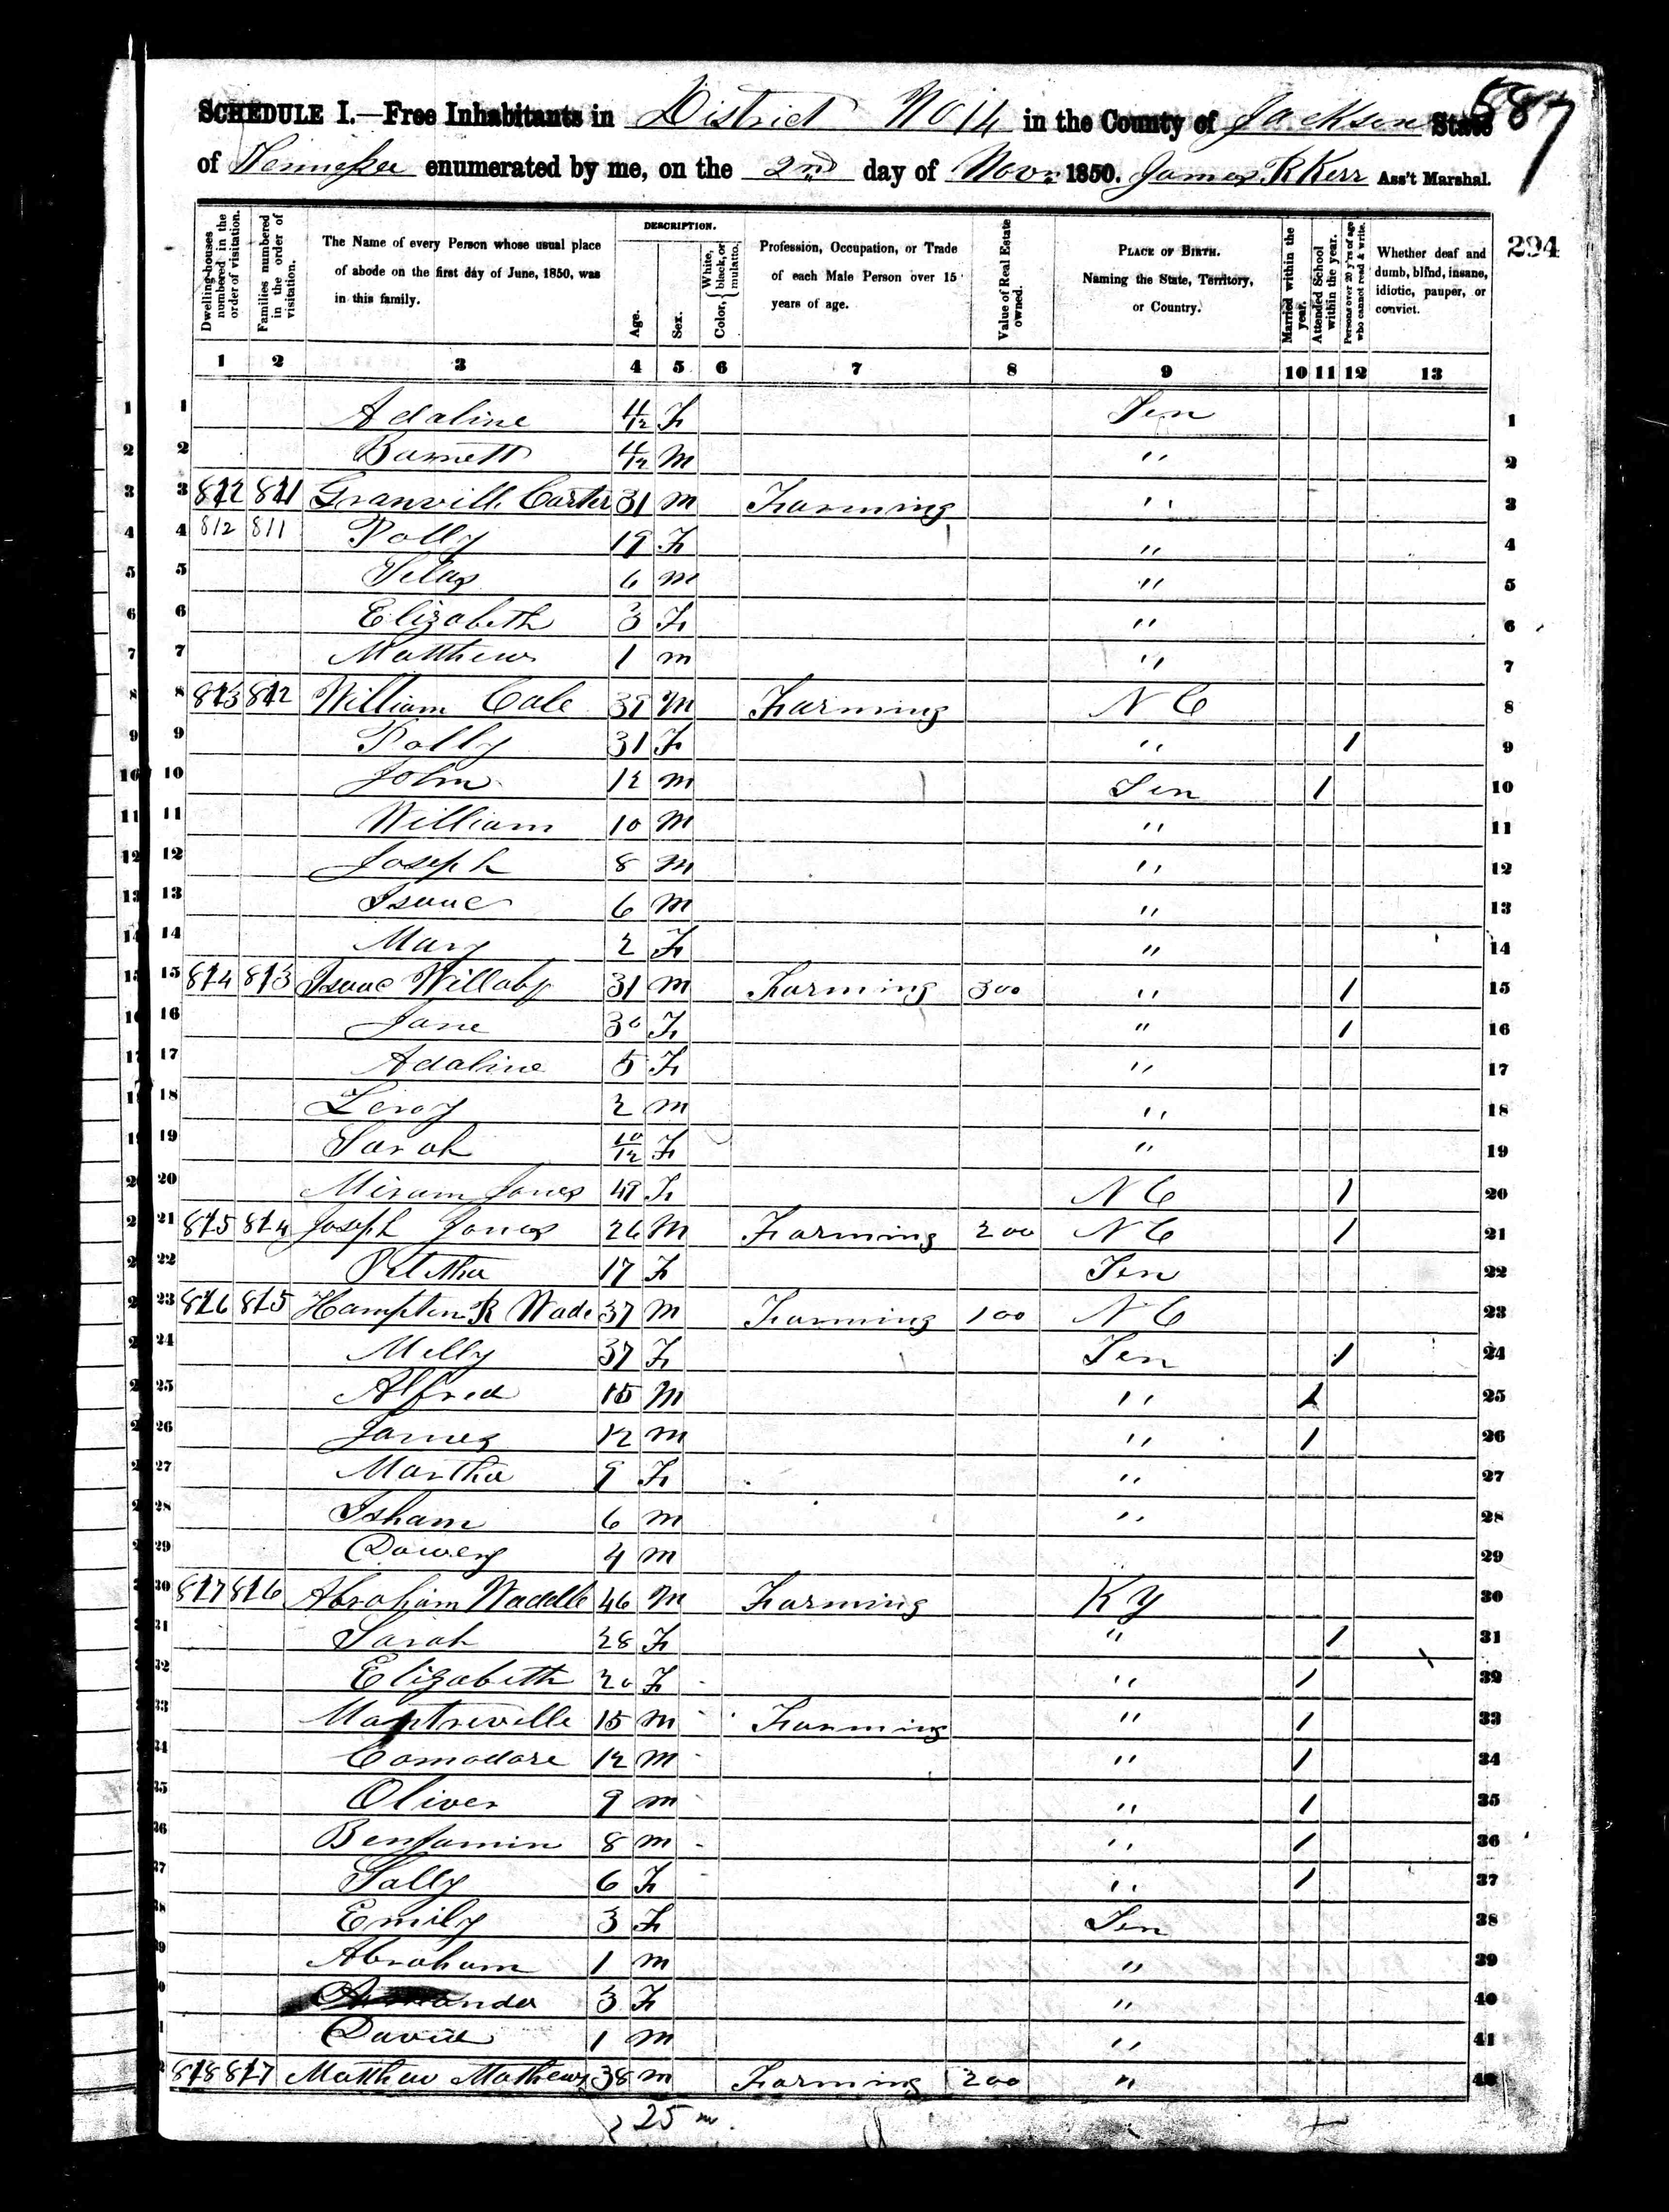 587
SCHEDULE I.—Free Inhabitants in District No 14 in the County of Jackson State
of Tennessee enumerated by me, on the 2nd day of Novr 1850. James R Kerr Ass't Marshal.
294
Dwelling-houses numbered in the order of visitation.
Families numbered in the order of visitation.
The Name of every Person whose usual place of abode on the first day of June, 1850, was in this family.
DESCRIPTION.
Age.
Sex.
Color, White, black, or mulatto.
Profession, Occupation, or Trade of each Male Person over 15 years of age.
Value of Real Estate owned.
PLACE OF BIRTH. Naming the State, Territory, or Country.
Married within the year.
Attended School within the year.
Persons over 20 y'rs of age who cannot read & write.
Whether deaf and dumb, blind, insane, idiotic, pauper, or convict.
1 2 3 4 5 6 7 8 9 10 11 12 13
1 Adaline 4/12 F Ten 1
2 Barnett 4/12 M " 2
3 812 811 Granvill Carter 31 M Farming " 3
4 812 811 Polly 19 F " 4
5 Silas 6 M " 5
6 Elizabeth 3 F " 6
7 Matthew 1 M " 7
8 813 812 William Cale 39 M Farming N C 8
9 Polly 31 F " 1 9
10 John 12 M Ten 1 10
11 William 10 M " 11
12 Joseph 8 M " 12
13 Isaac 6 M " 13
14 Mary 2 F " 14
15 814 813 Isaac Willaby 31 M Farming 300 " 1 15
16 Jane 30 F " 1 16
17 Adaline 5 F " 17
18 Leroy 2 M " 18
19 Sarah 10/12 F " 19
20 Miram Jones 49 F N C 1 20
21 815 814 Joseph Jones 26 M Farming 200 N C 1 21
22 17 F Ten 22
23 816 815 Hampton R Wade 37 M Farming 100 N C 23
24 Milly 37 F Ten 1 24
25 Alfred 15 M " 1 25
26 James 12 M " 1 26
27 Martha 9 F " 27
28 Isham 6 M " 28
29 Dowery 4 M 29
30 817 816 Abraham Waddle 46 M Farming K Y 30
31 Sarah 28 F " 1 31
32 Elizabeth 20 F " 1 32
33 Montreville 15 M Farming " 1 33
34 Comodore 12 M " 1 34
35 Oliver 9 M " 1 35
36 Benjamin 8 M " 1 36
37 Sally 6 F " 1 37
38 Emily 3 F Ten 38
39 Abraham 1 M " 39
40 Amanda 3 F " 40
41 David 1 M " 41
42 818 817 Matthew Mathews 38 M Farming 200 " 42
25 m